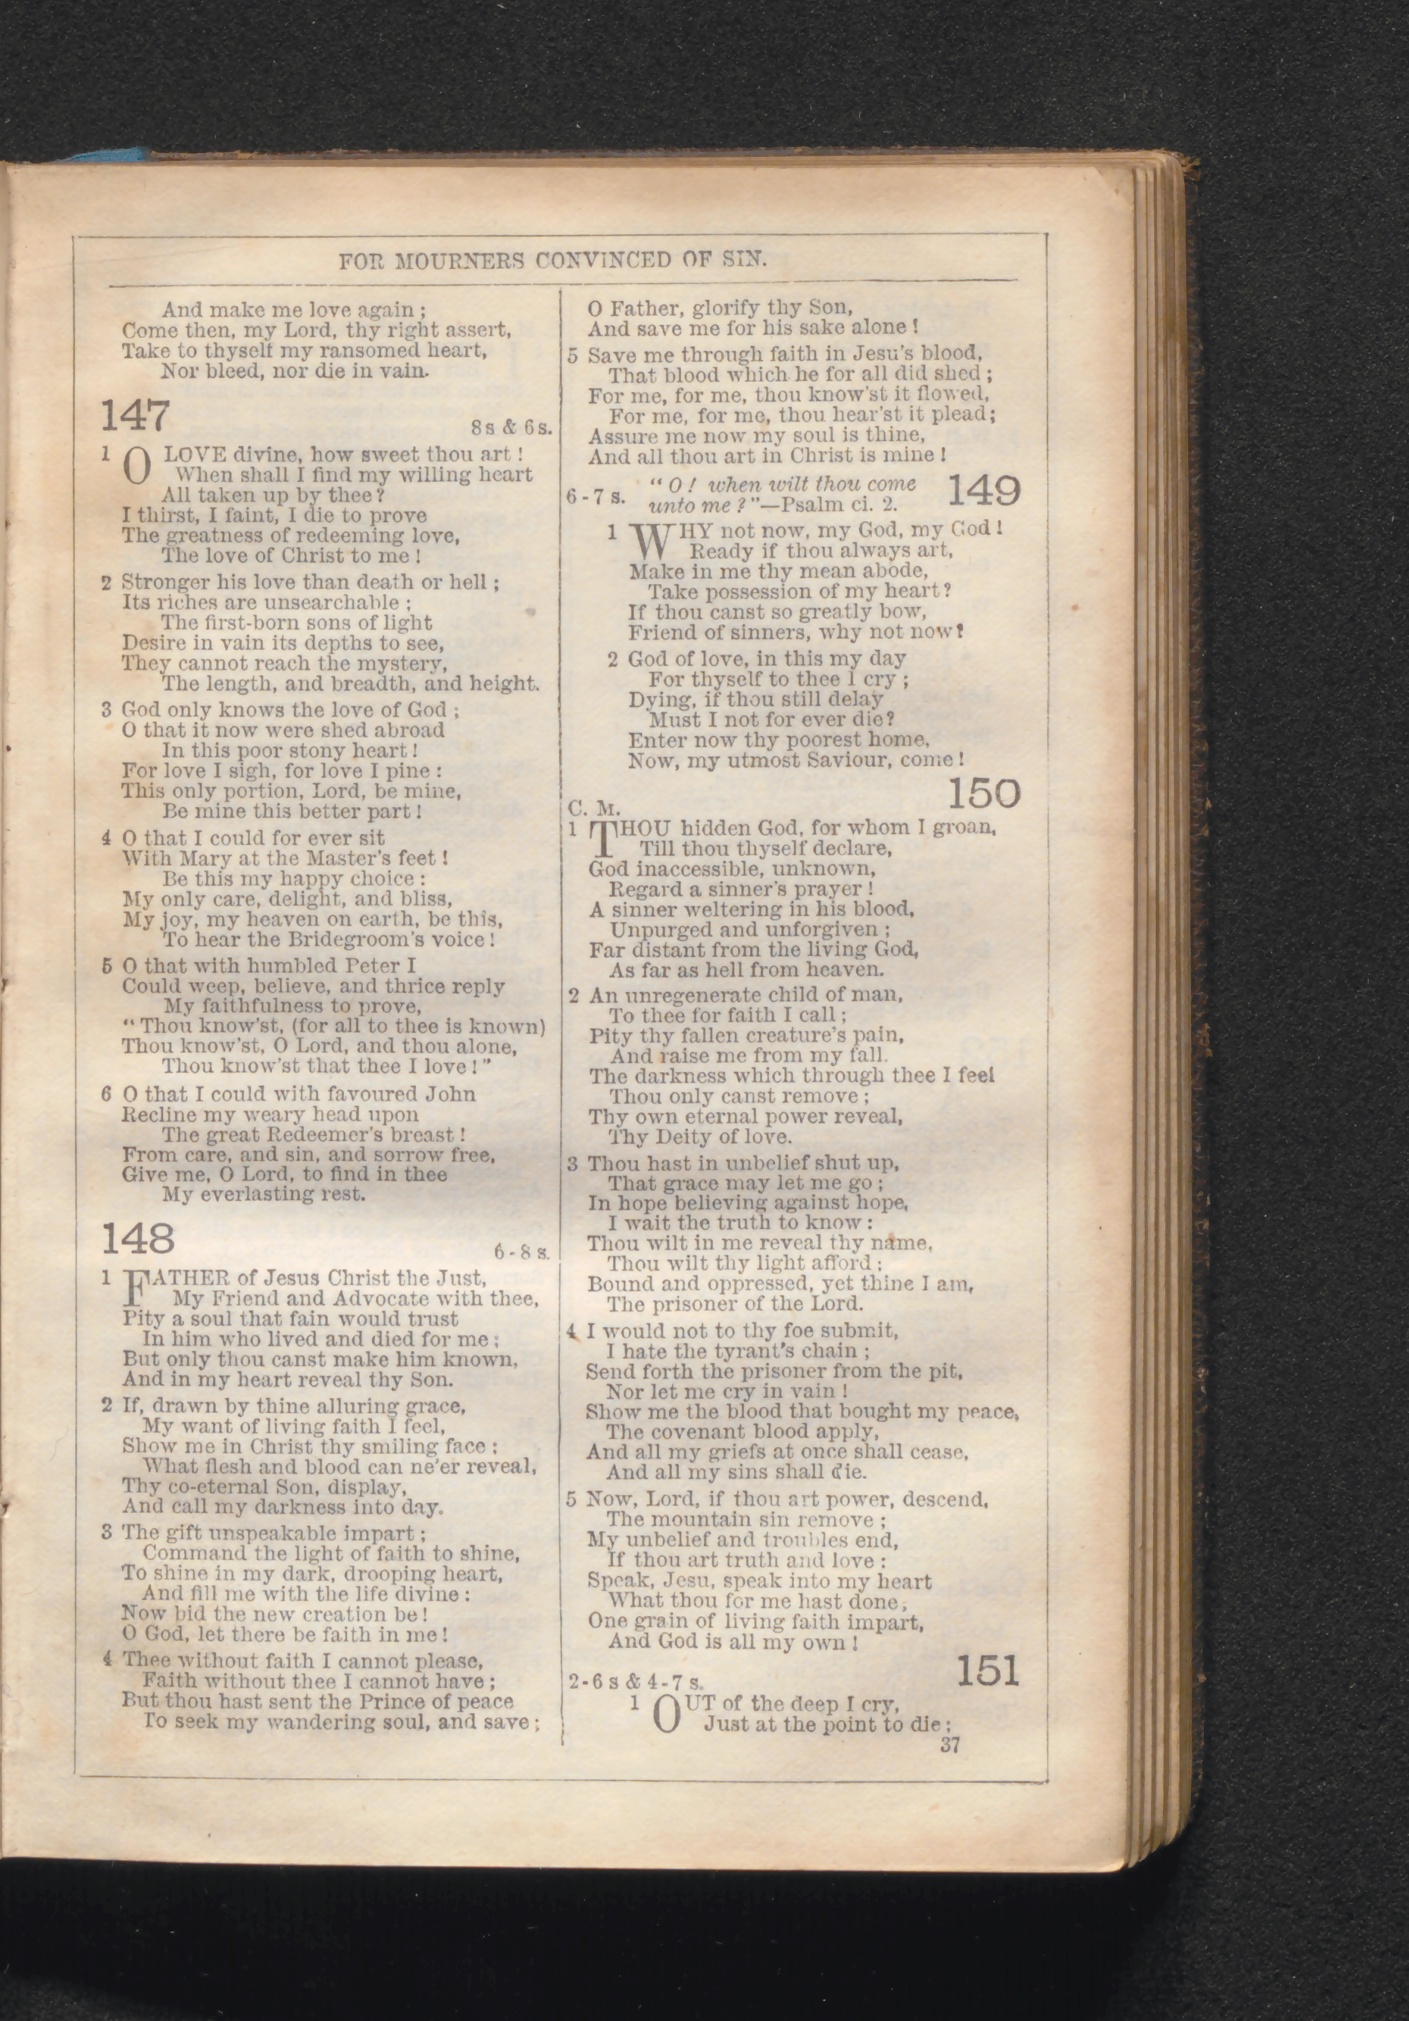 FOR MOURNERS CONVINCED OF SIN.
And make me love again ;
Come then, my Lord, thy right assert,
Take to thyself my ransomed heart,
Nor bleed, nor die in vain.
147
8s & 6s.
1 O LOVE divine, how sweet thou art !
When shall I find my willing heart
All taken up by thee ?
I thirst, I faint, I die to prove
The greatness of redeeming love,
The love of Christ to me !
2 Stronger his love than death or hell ;
Its riches are unsearchable ;
The first-born sons of light
Desire in vain its depths to see,
They cannot reach the mystery,
The length, and breadth, and height.
3 God only knows the love of God ;
O that it now were shed abroad
In this poor stony heart !
For love I sigh, for love I pine :
This only portion, Lord, be mine,
Be mine this better part !
4 O that I could for ever sit
With Mary at the Master's feet !
Be this my happy choice :
My only care, delight, and bliss,
My joy, my heaven on earth, be this,
To hear the Bridegroom's voice !
5 O that with humbled Peter I
Could weep, believe, and thrice reply
My faithfulness to prove,
“ Thou know'st, (for all to thee is known)
Thou know'st, O Lord, and thou alone,
Thou know'st that thee I love ! ”
6 O that I could with favoured John
Recline my weary head upon
The great Redeemer's breast !
From care, and sin, and sorrow free,
Give me, O Lord, to find in thee
My everlasting rest.
148
6-8 s.
1 FATHER of Jesus Christ the Just,
My Friend and Advocate with thee,
Pity a soul that fain would trust
In him who lived and died for me ;
But only thou canst make him known,
And in my heart reveal thy Son.
2 If, drawn by thine alluring grace,
My want of living faith I feel,
Show me in Christ thy smiling face ;
What flesh and blood can ne'er reveal,
Thy co-eternal Son, display,
And call my darkness into day.
3 The gift unspeakable impart ;
Command the light of faith to shine,
To shine in my dark, drooping heart,
And fill me with the life divine :
Now bid the new creation be !
O God, let there be faith in me !
4 Thee without faith I cannot please,
Faith without thee I cannot have ;
But thou hast sent the Prince of peace
To seek my wandering soul, and save ;
O Father, glorify thy Son,
And save me for his sake alone !
5 Save me through faith in Jesu's blood,
That blood which he for all did shed ;
For me, for me, thou know'st it flowed,
For me, for me, thou hear'st it plead;
Assure me now my soul is thine,
And all thou art in Christ is mine !
149
6-7 s. “ O ! when wilt thou come
unto me ? ”—Psalm ci. 2.
1 WHY not now, my God, my God !
Ready if thou always art,
Make in me thy mean abode,
Take possession of my heart ?
If thou canst so greatly bow,
Friend of sinners, why not now ?
2 God of love, in this my day
For thyself to thee I cry ;
Dying, if thou still delay
Must I not for ever die ?
Enter now thy poorest home,
Now, my utmost Saviour, come !
150
C. M.
1 THOU hidden God, for whom I groan,
Till thou thyself declare,
God inaccessible, unknown,
Regard a sinner's prayer !
A sinner weltering in his blood,
Unpurged and unforgiven ;
Far distant from the living God,
As far as hell from heaven.
2 An unregenerate child of man,
To thee for faith I call ;
Pity thy fallen creature's pain,
And raise me from my fall.
The darkness which through thee I feel
Thou only canst remove ;
Thy own eternal power reveal,
Thy Deity of love.
3 Thou hast in unbelief shut up,
That grace may let me go ;
In hope believing against hope,
I wait the truth to know :
Thou wilt in me reveal thy name,
Thou wilt thy light afford ;
Bound and oppressed, yet thine I am,
The prisoner of the Lord.
4 I would not to thy foe submit,
I hate the tyrant's chain ;
Send forth the prisoner from the pit,
Nor let me cry in vain !
Show me the blood that bought my peace,
The covenant blood apply,
And all my griefs at once shall cease,
And all my sins shall die.
5 Now, Lord, if thou art power, descend,
The mountain sin remove ;
My unbelief and troubles end,
If thou art truth and love :
Speak, Jesu, speak into my heart
What thou for me hast done,
One grain of living faith impart,
And God is all my own !
151
2-6 s & 4-7 s.
1 OUT of the deep I cry,
Just at the point to die ;
37